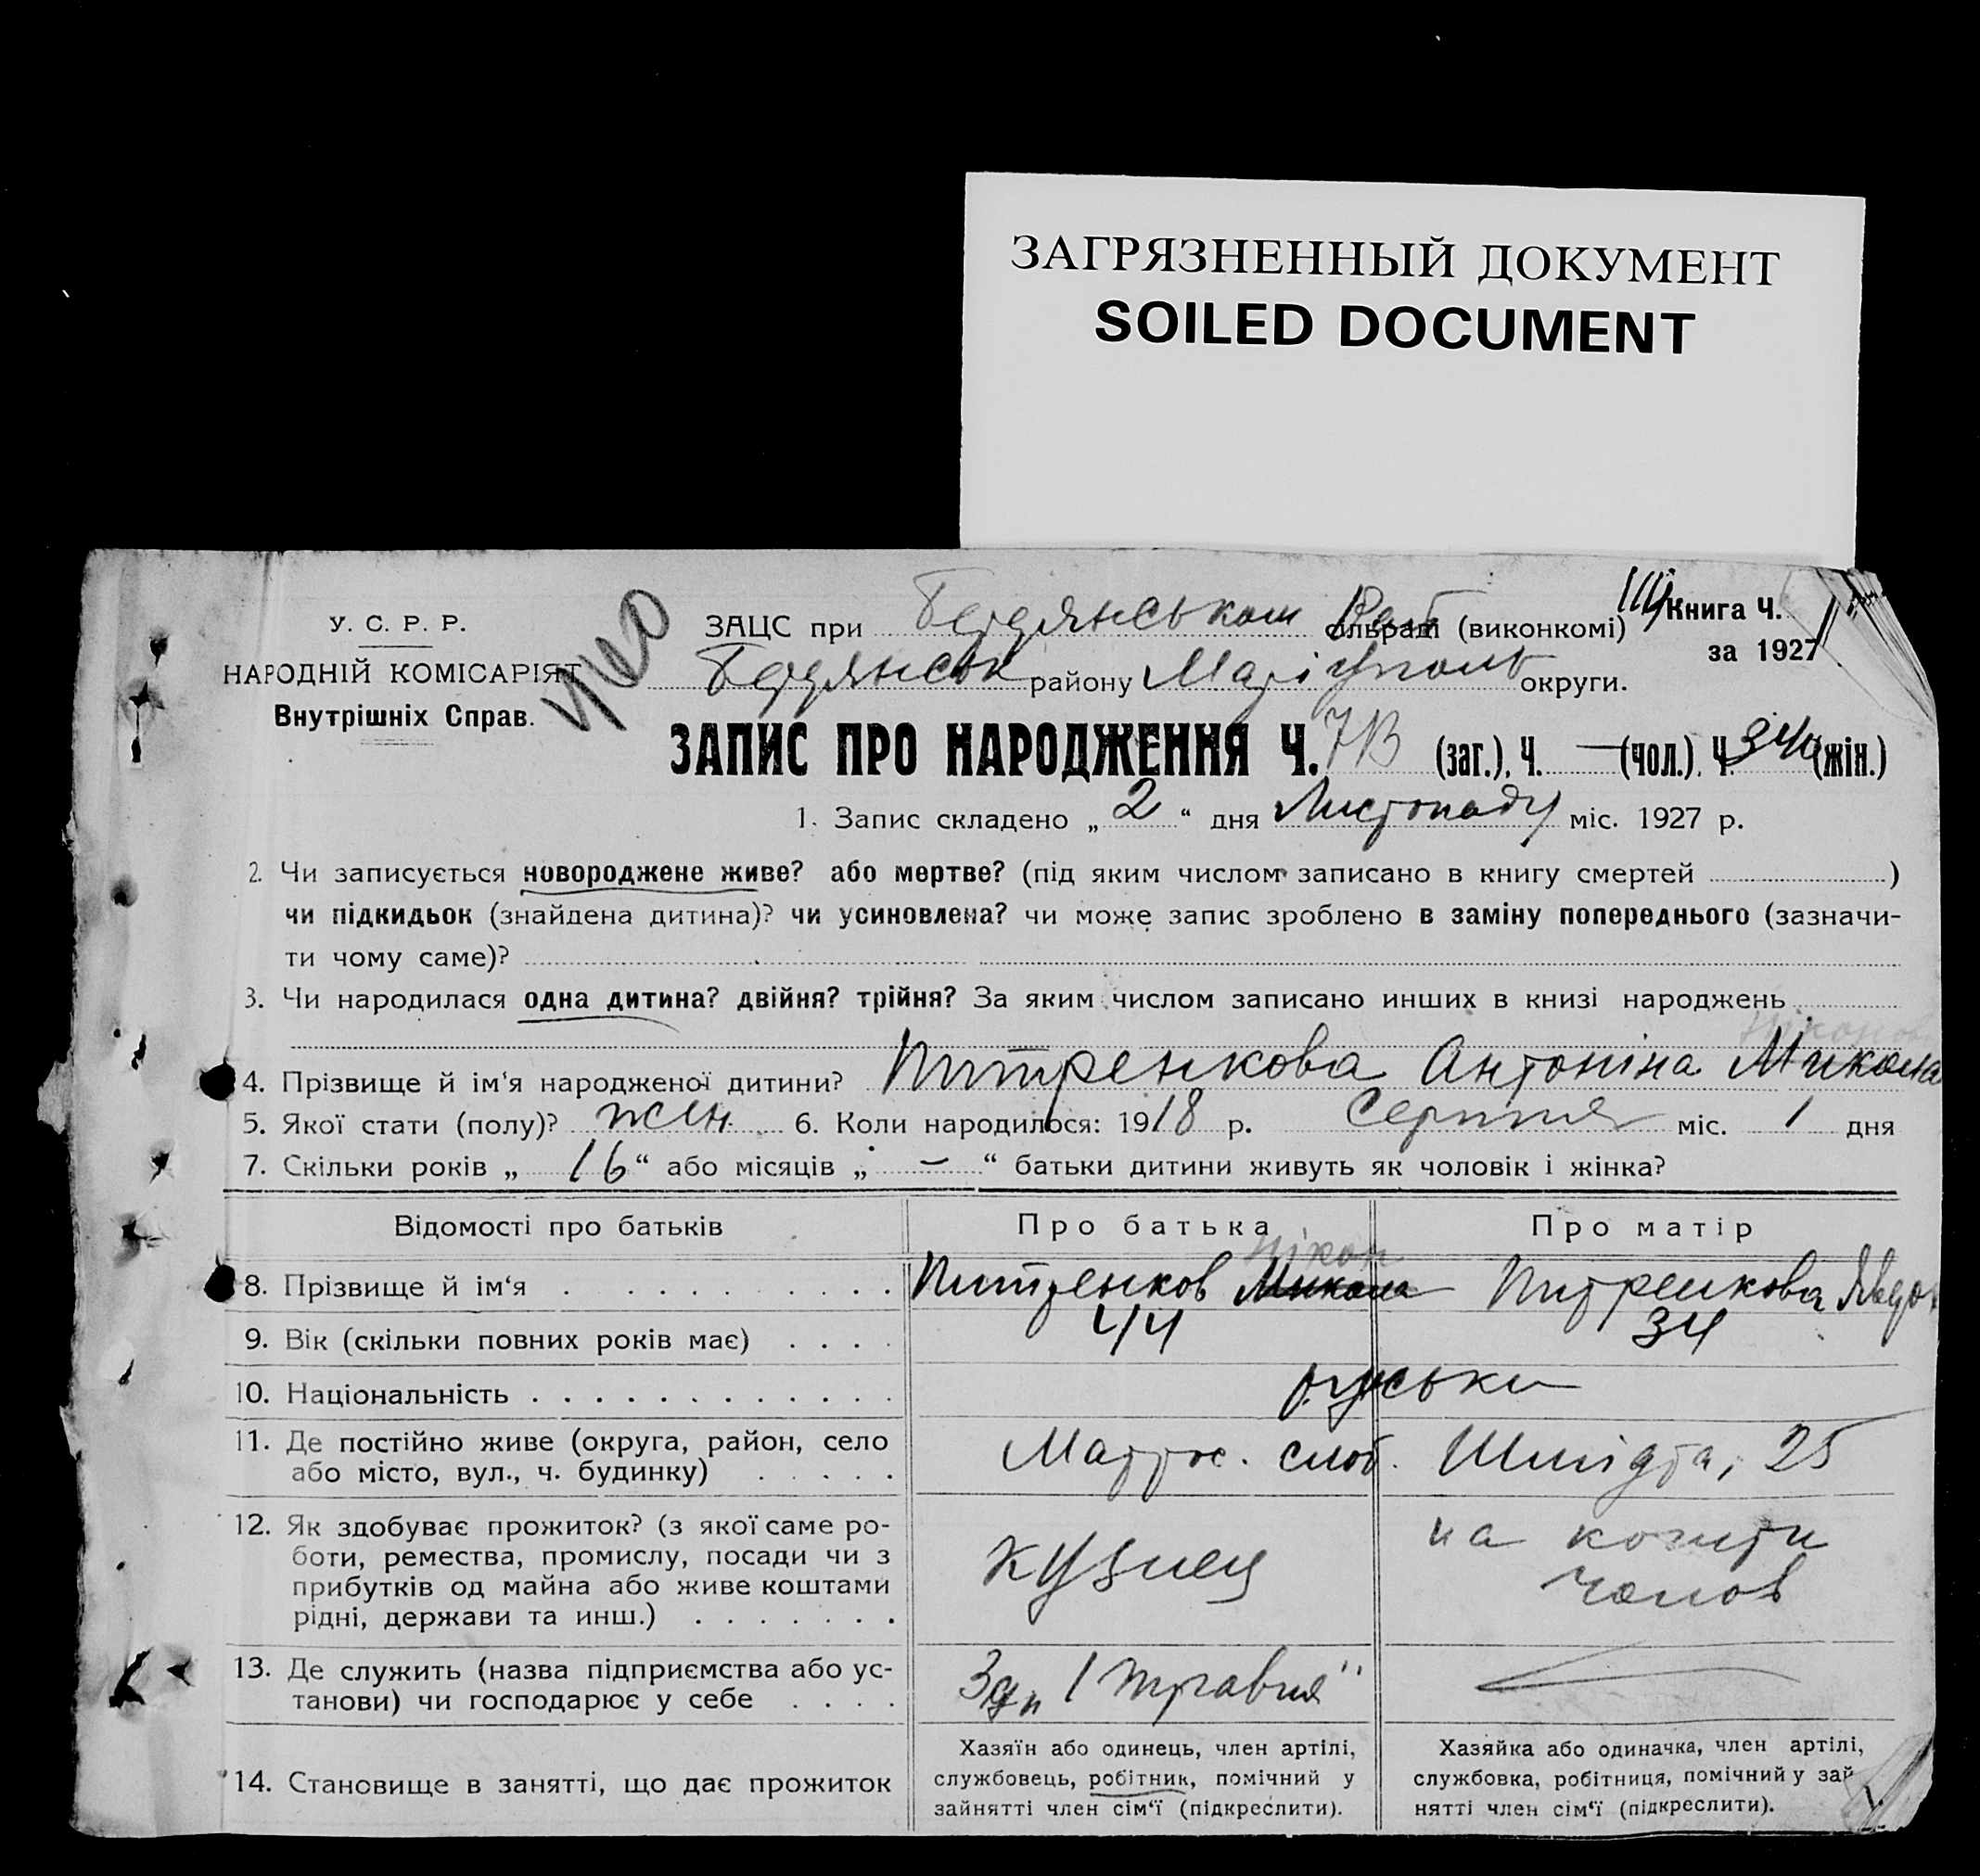 ЗАГРЯЗНЕННЫЙ ДОКУМЕНТ
SOILED DOCUMENT
У. С. Р. Р.
НАРОДНІЙ КОМІСАРІЯТ
Внутрішніх Справ.
ЗАЦС при Бердянськом сільраді (виконкомі)
Книга Ч.
за 1927
Бердянськ району Маріуполь округи.
ЗАПИС ПРО НАРОДЖЕННЯ Ч. (заг.), Ч. — (чол.), Ч. (жін.)
1. Запис складено „ 2 “ дня Листопаду міс. 1927 р.
2. Чи записується новороджене живе? або мертве? (під яким числом записано в книгу смертей )
чи підкидьок (знайдена дитина)? чи усиновлена? чи може запис зроблено в заміну попереднього (зазначи-
ти чому саме)?
3. Чи народилася одна дитина? двійня? трійня? За яким числом записано инших в книзі народжень
4. Прізвище й ім‘я народженої дитини? Питренкова Антоніна Микола
5. Якої стати (полу)? жін. 6. Коли народилося: 1918 р. Серпня міс. 1 дня
7. Скільки років „ 16 “ або місяців „ – “ батьки дитини живуть як чоловік і жінка?
Відомості про батьків Про батька Про матір
Нікон
8. Прізвище й ім‘я Питренков Микола Питренкова Явдок
9. Вік (скільки повних років має) 44 34
10. Національність руськи
11. Де постійно живе (округа, район, село
або місто, вул., ч. будинку) слоб. Шмідта, 25
12. Як здобуває прожиток? (з якої саме ро-
боти, ремества, промислу, посади чи з
прибутків од майна або живе коштами
рідні, держави та инш.)
кузнец
на кошти
чолов
13. Де служить (назва підприємства або ус-
танови) чи господарює у себе
Здп 1 травня"
14. Становище в занятті, що дає прожиток
Хазяїн або одинець, член артілі,
службовець, робітник, помічний у
зайнятті член сім‘ї (підкреслити).
Хазяйка або одиначка, член артілі,
службовка, робітниця, помічний у зай
нятті член сім‘ї (підкреслити).